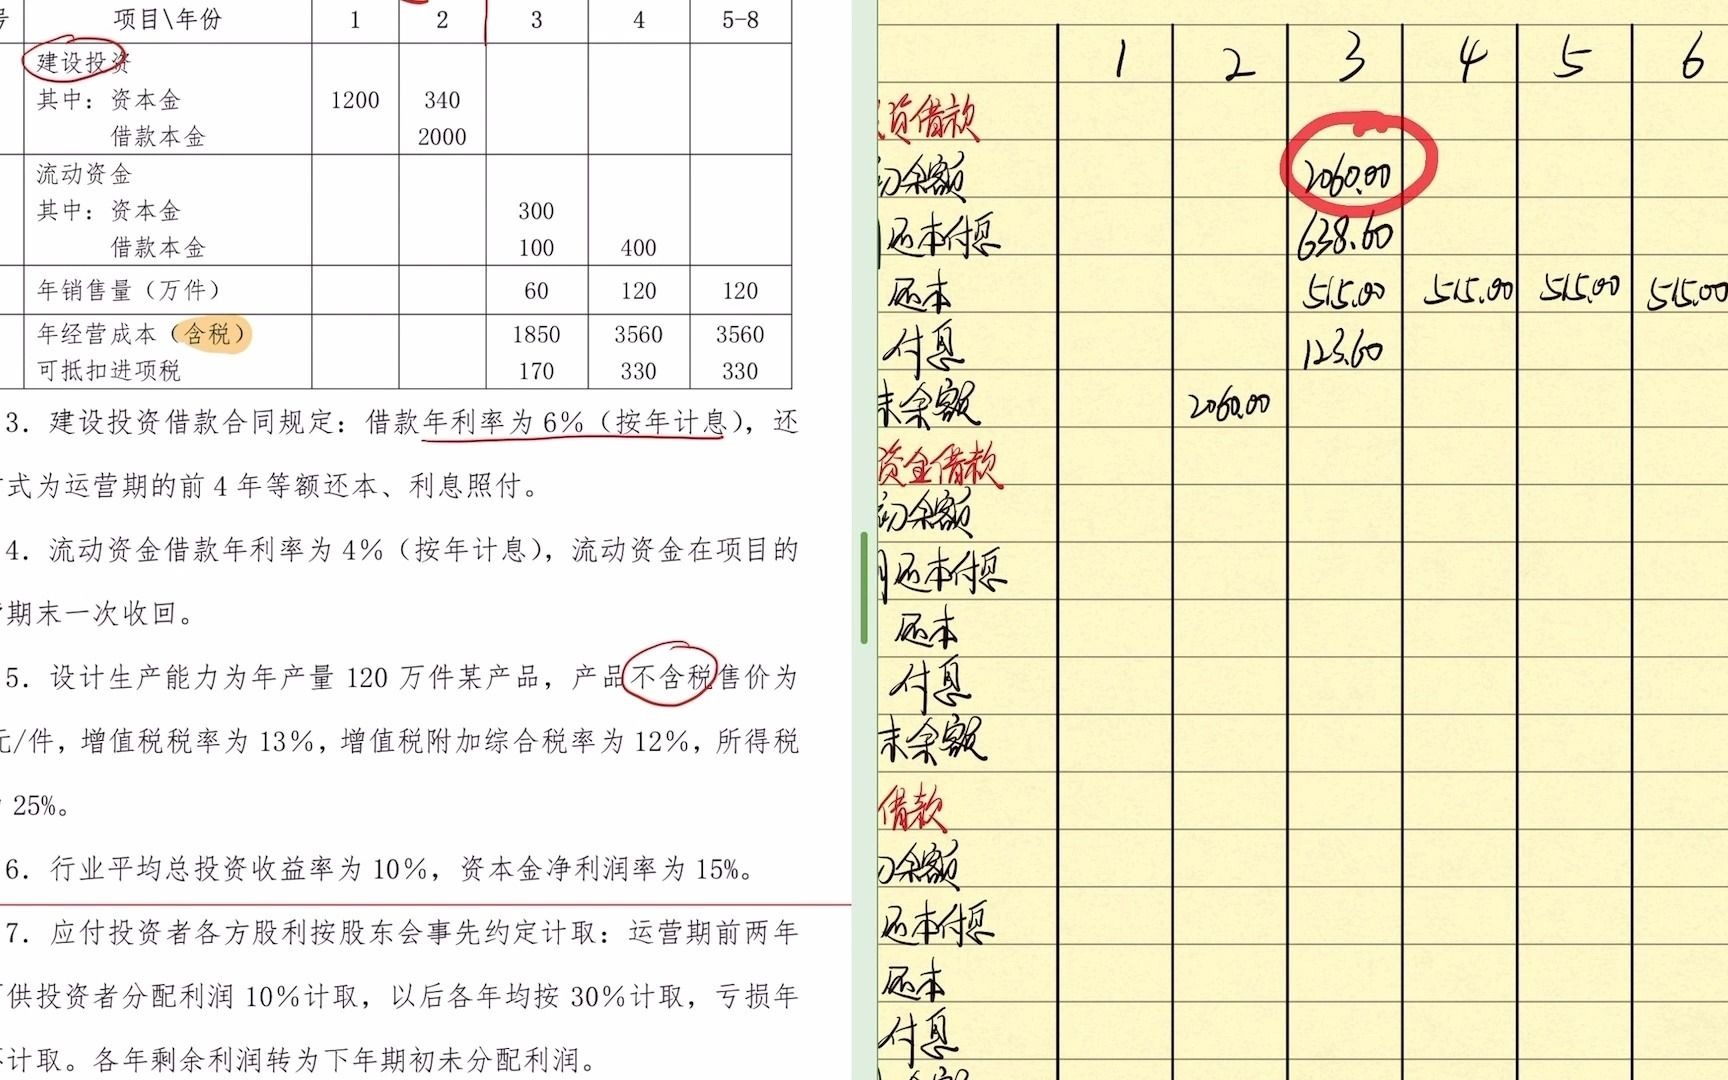 号 项目\年份 1 2 3 4 5-8
建设投资
其中：资本金 1200 340
借款本金 2000
流动资金
其中：资本金 300
借款本金 100 400
年销售量（万件） 60 120 120
年经营成本（含税） 1850 3560 3560
可抵扣进项税 170 330 330
3．建设投资借款合同规定：借款年利率为 6%（按年计息），还
式为运营期的前 4 年等额还本、利息照付。
4．流动资金借款年利率为 4%（按年计息），流动资金在项目的
期末一次收回。
5．设计生产能力为年产量 120 万件某产品，产品不含税售价为
元/件，增值税税率为 13%，增值税附加综合税率为 12%，所得税
25%。
6．行业平均总投资收益率为 10%，资本金净利润率为 15%。
7．应付投资者各方股利按股东会事先约定计取：运营期前两年
供投资者分配利润 10%计取，以后各年均按 30%计取，亏损年
计取。各年剩余利润转为下年期初未分配利润。
1 2 3 4 5 6
资借款
初余额 2060.00
还本付息 638.60
还本 515.00 515.00 515.00 515.00
付息 123.60
末余额 2060.00
资金借款
初余额
还本付息
还本
付息
末余额
借款
初余额
还本付息
还本
付息